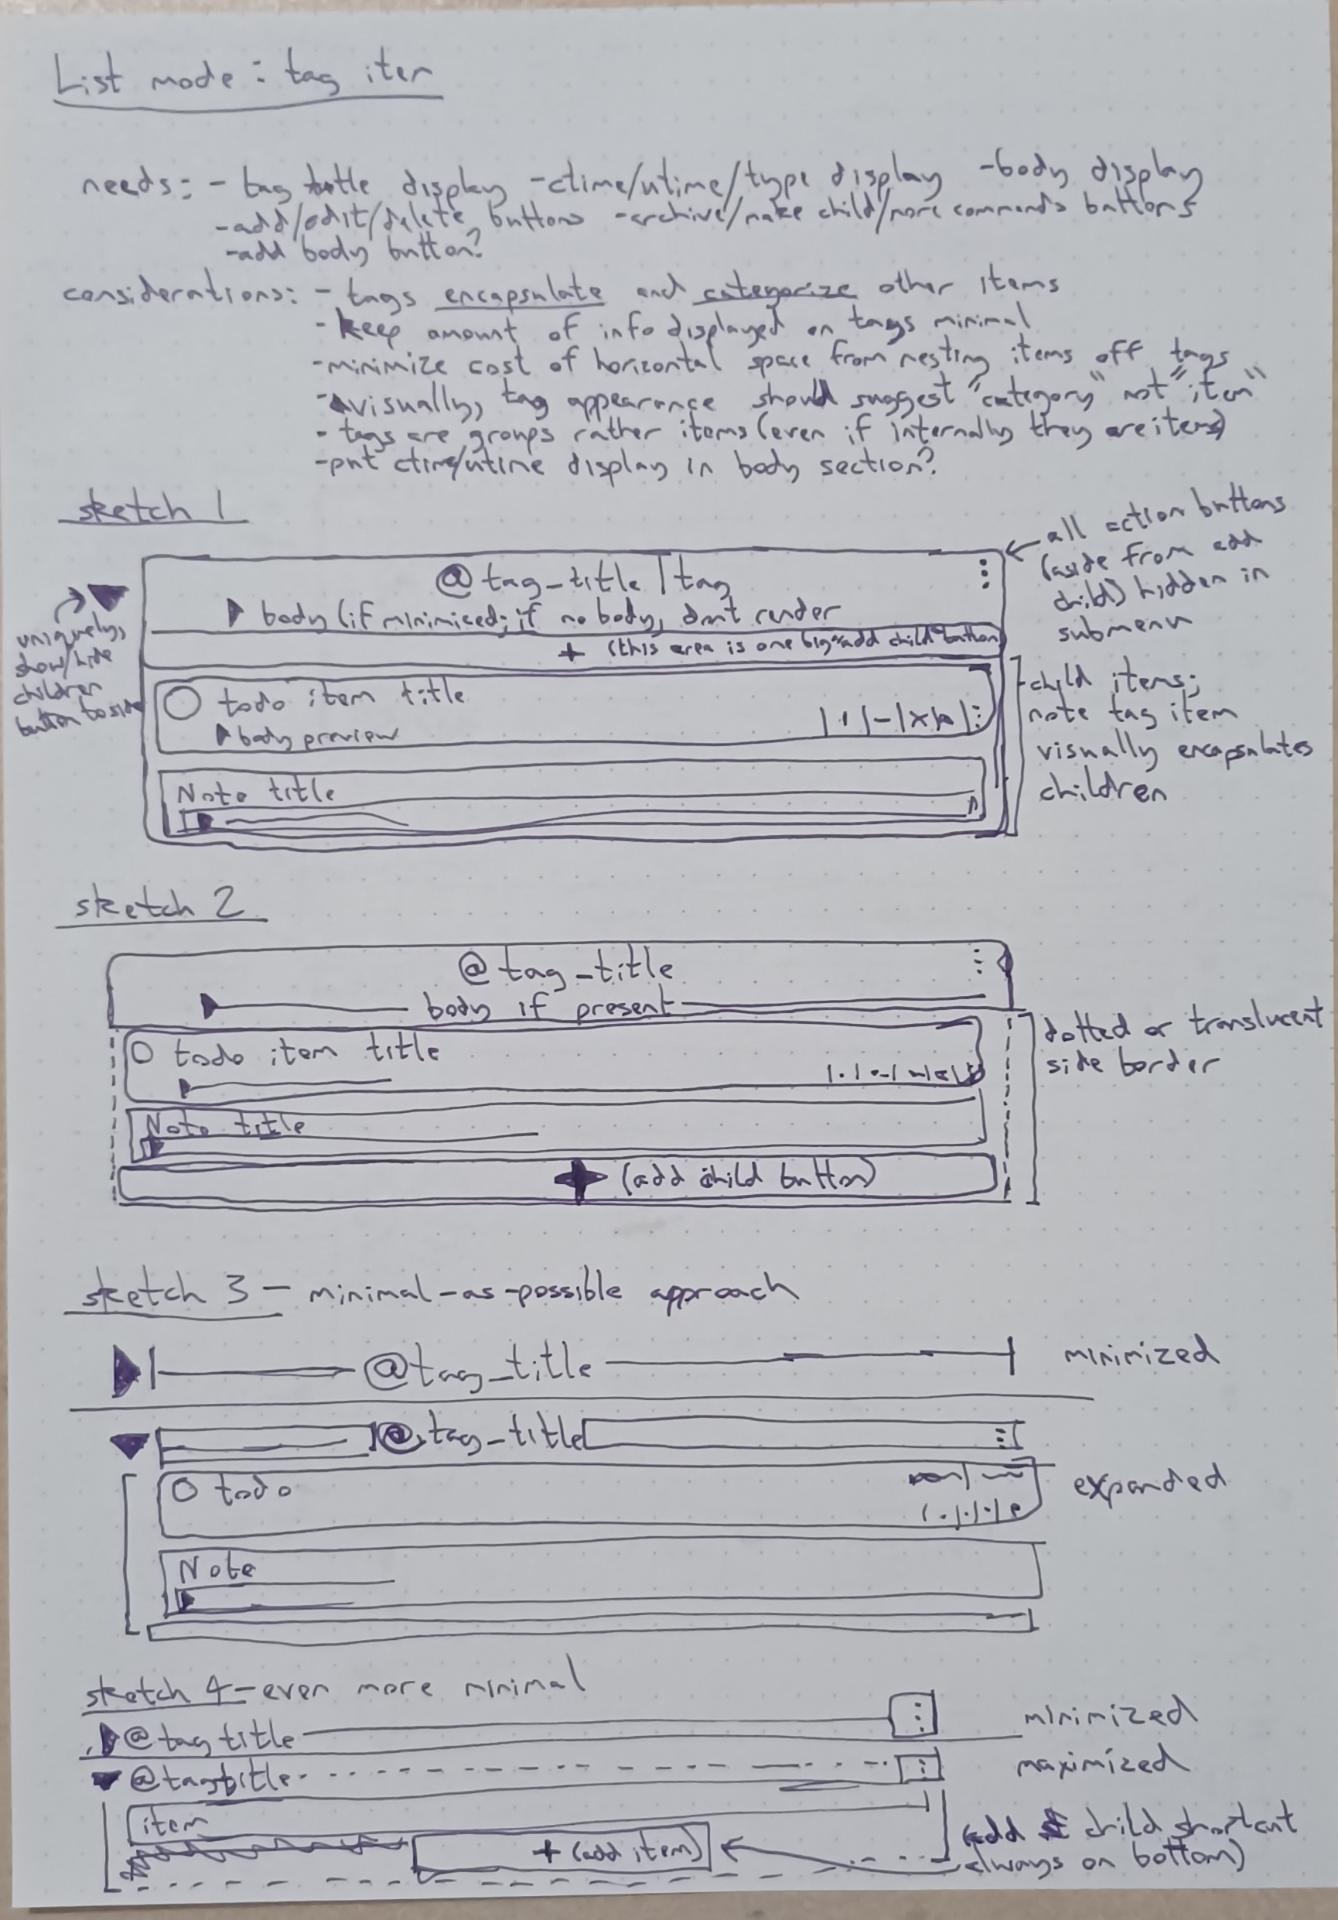 List mode: tag item
needs: - tag title display -ctime/utime/type display -body display
-add/edit/delete buttons -archive/make child/more commands buttons
-add body button?
considerations: - tags encapsulate and categorize other items
- keep amount of info displayed on tags minimal
-minimize cost of horizontal space from nesting items off tags
-visually, tag appearance should suggest "category" not "item"
- tags are groups rather items (even if internally they are items)
-put ctime/utime display in body section?
sketch 1
all action buttons
(aside from add
child) hidden in
submenu
uniquely,
show/hide
children
button to side
@tag_title | tag
body (if minimized; if no body, dont render
+ (this area is one big "add child" button
todo item title
body preview
Note title
child items;
note tag item
visually encapsulates
children
sketch 2
@tag_title
body if present
todo item title
Note title
+ (add child button)
dotted or translucent
side border
sketch 3 - minimal-as-possible approach
@tag_title
minimized
@tag_title
todo
expanded
Note
sketch 4-even more minimal
@tag title
minimized
@tag title
maximized
item
+ (add item)
(add child shortcut
always on bottom)